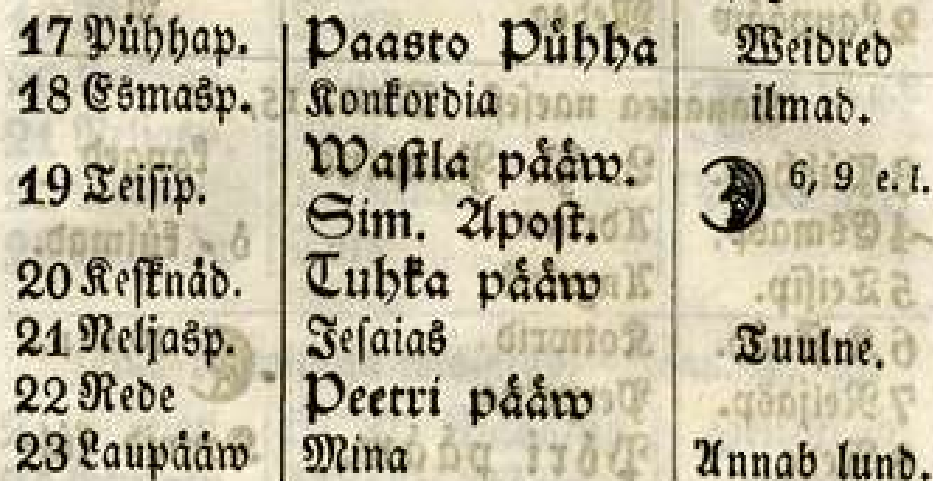 17 Půhhap. Paasto Půhha Weidred
18 Esmasp. Konkordia ilmad.
19 Teisip. Wastla pååw. 6, 9 e. l.
Sim. Apost.
20 Kesknåd. Tuhka pååw
21 Neljasp. Jesaias Tuulne.
22 Rede Peetri pååw
23 Laupååw Mina Annab lund.